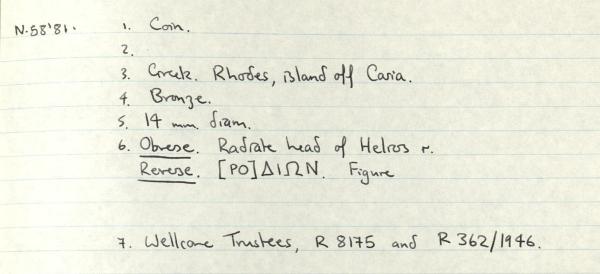 N.58'81. 1. Coin.
2.
3. Greek. Rhodes, island off Caria.
4. Bronze.
5. 14 mm. diam.
6. Obverse. Radiate head of Helios r.
Reverse. [PO]ΔΙΩΝ. Figure
7. Wellcome Trustees, R 8175 and R 362/1946.